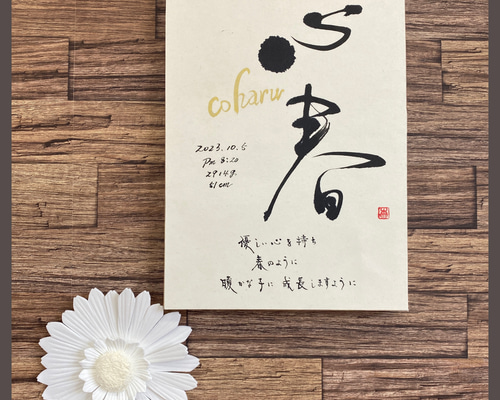 心
春
coharu
2023.10.5
Pm 8:20
2914g
51cm
優しい心を持ち
春のように
暖かな子に成長しますように